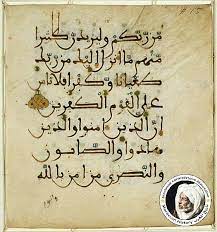 من ربكم وليزيدن كثيرا
منهم ما انزل اليك من ربك
طغينا وكفرا فلا تاس
على القوم الكفرين
ان الذين امنوا والذين
هادوا والصابون
والنصرى من امن بالله